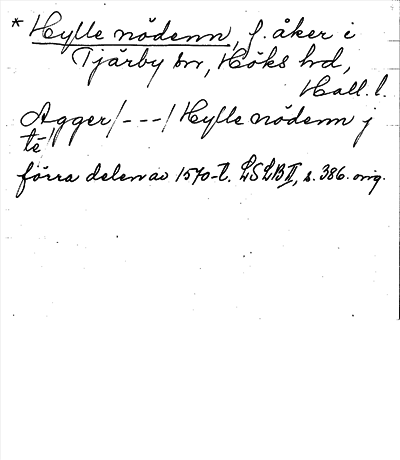 * Hylle nödenn, f. åker i
Tjärby sn, Höks hd,
Hall. l.
Agger/---/ Hylle nödenn j
té
förra delen av 1570-t. LSLB II, s. 386. orig.